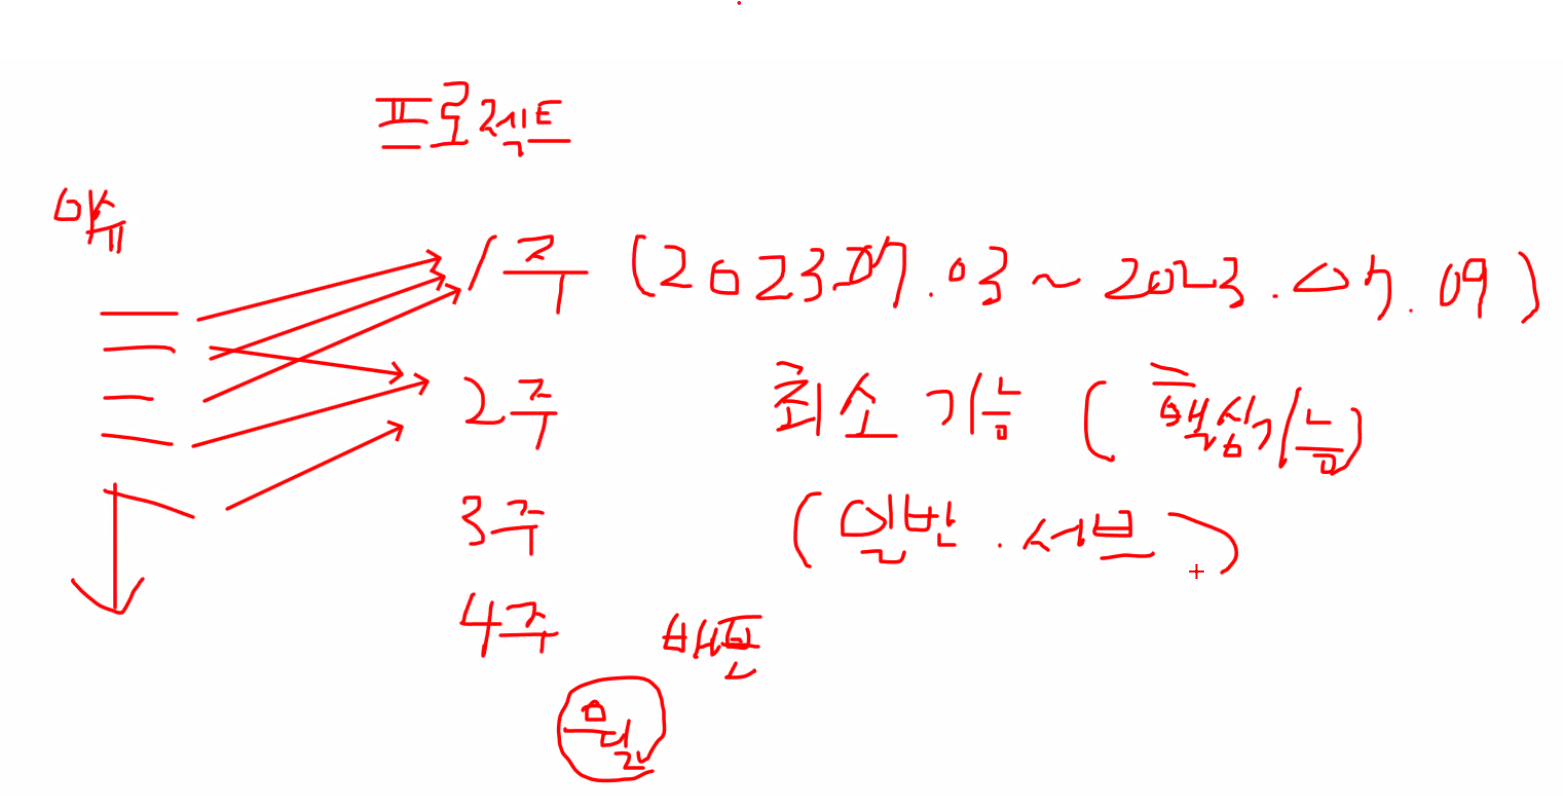 프로젝트
이슈
1주 (2023.07.03 ~ 2023.07.09)
2주 최소 기능 (핵심기능)
3주 (일반.서브)
4주